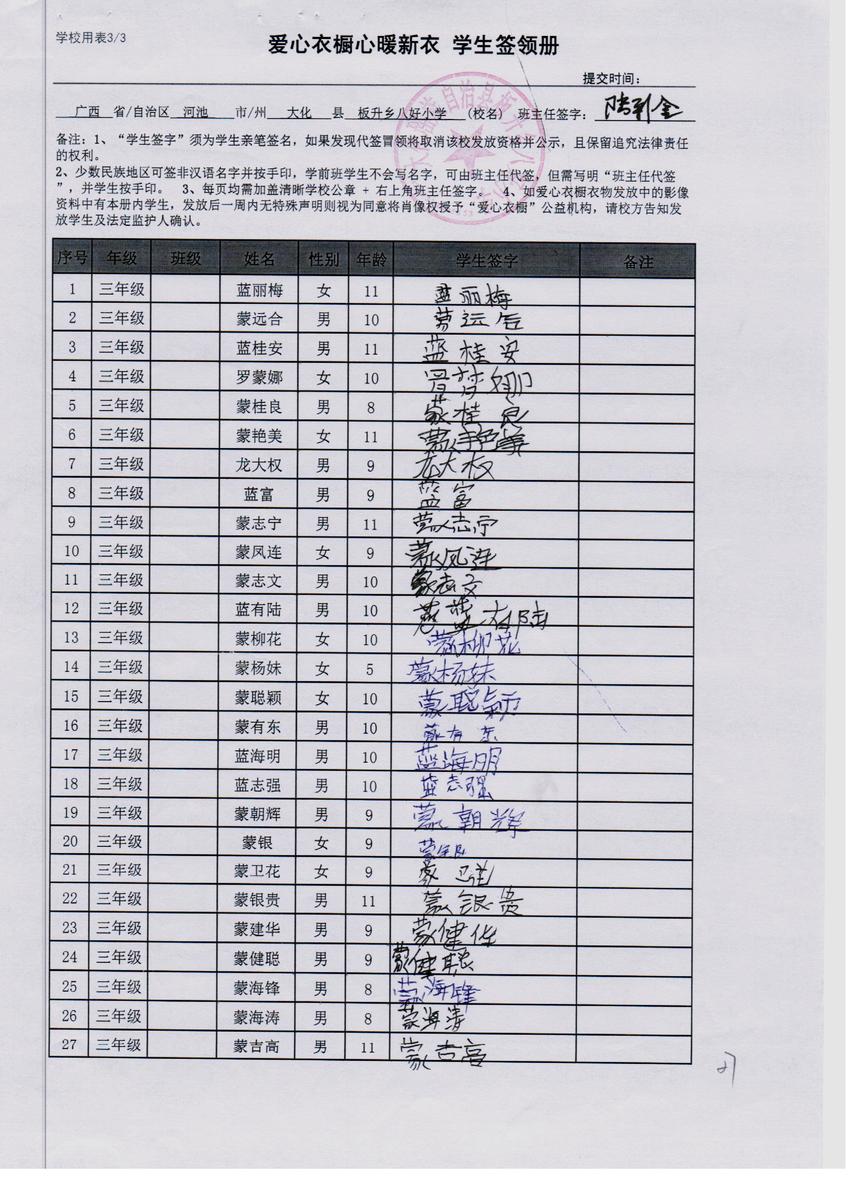 学校用表3/3
爱心衣橱心暖新衣 学生签领册
提交时间：
广西 省/自治区 河池 市/州 大化 县 板升乡八好小学 (校名) 班主任签字：
备注：1、“学生签字”须为学生亲笔签名，如果发现代签冒领将取消该校发放资格并公示，且保留追究法律责任
的权利。
2、少数民族地区可签非汉语名字并按手印，学前班学生不会写名字，可由班主任代签，但需写明“班主任代签
”，并学生按手印。 3、每页均需加盖清晰学校公章 + 右上角班主任签字。 4、如爱心衣橱衣物发放中的影像
资料中有本册内学生，发放后一周内无特殊声明则视为同意将肖像权授予“爱心衣橱”公益机构，请校方告知发
放学生及法定监护人确认。
序号 年级 班级 姓名 性别 年龄 学生签字 备注
1 三年级 蓝丽梅 女 11 蓝丽梅
2 三年级 蒙远合 男 10 蒙远合
3 三年级 蓝桂安 男 11 蓝桂安
4 三年级 罗蒙娜 女 10
5 三年级 蒙桂良 男 8 蒙桂良
6 三年级 蒙艳美 女 11 蒙艳美
7 三年级 龙大权 男 9 龙大权
8 三年级 蓝富 男 9 蓝富
9 三年级 蒙志宁 男 11 蒙志宁
10 三年级 蒙凤连 女 9 蒙凤连
11 三年级 蒙志文 男 10 蒙志文
12 三年级 蓝有陆 男 10 蓝有陆
13 三年级 蒙柳花 女 10 蒙柳花
14 三年级 蒙杨妹 女 5 蒙杨妹
15 三年级 蒙聪颖 女 10 蒙聪颖
16 三年级 蒙有东 男 10 蒙有东
17 三年级 蓝海明 男 10 蓝海明
18 三年级 蓝志强 男 10 蓝志强
19 三年级 蒙朝辉 男 9 蒙朝辉
20 三年级 蒙银 女 9 蒙银
21 三年级 蒙卫花 女 9 蒙卫花
22 三年级 蒙银贵 男 11 蒙银贵
23 三年级 蒙建华 男 9 蒙健华
24 三年级 蒙健聪 男 9 蒙健聪
25 三年级 蒙海锋 男 8 蒙海锋
26 三年级 蒙海涛 男 8 蒙海涛
27 三年级 蒙吉高 男 11 蒙吉高
27